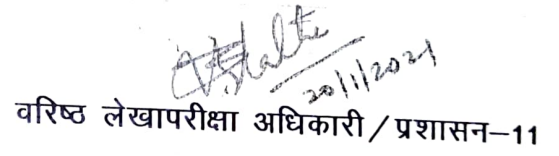 20/1/2021
वरिष्ठ लेखापरीक्षा अधिकारी/प्रशासन-11